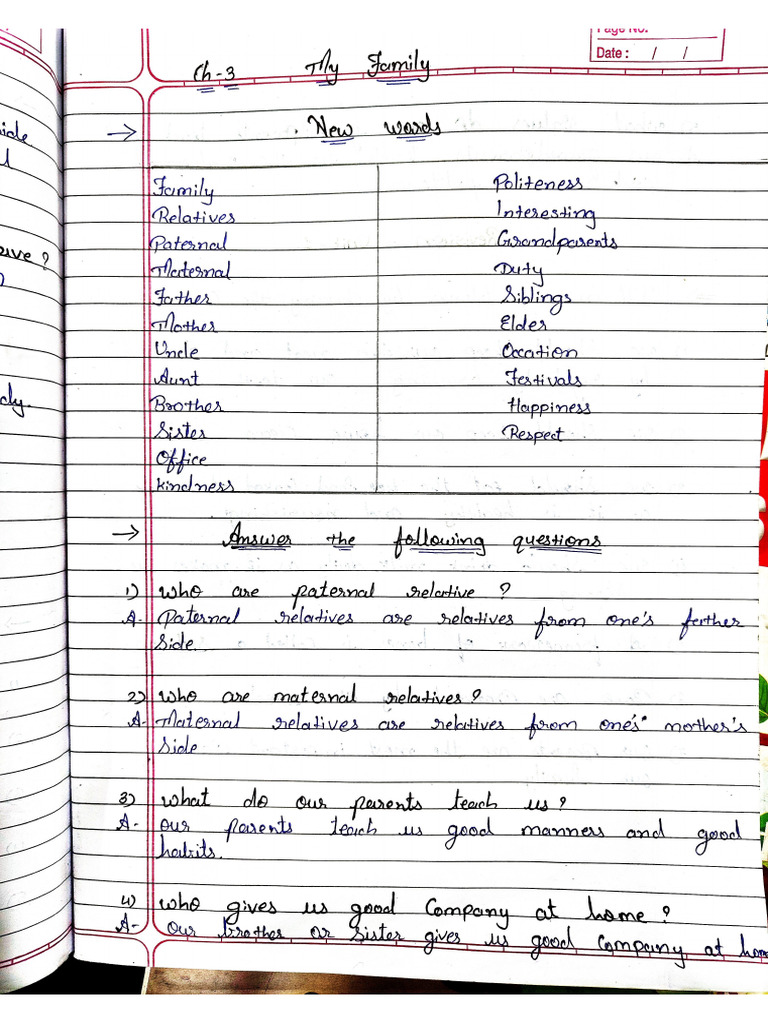 Page No.
Date : / /
Ch-3 My Family
→ New words
Family Politeness
Relatives Interesting
Paternal Grandparents
Maternal Duty
Father Siblings
Mother Elder
Uncle Occation
Aunt Festivals
Brother Happiness
Sister Respect
Office
kindness
→ Answer the following questions
1) who are paternal relative ?
A. Paternal relatives are relatives from one's father
side.
2) who are maternal relatives ?
A- Maternal relatives are relatives from one's mother's
side
3) what do our parents teach us ?
A- our parents teach us good manners and good
habits.
4) who gives us good Company at home ?
A- Our brother or sister gives us good Company at home